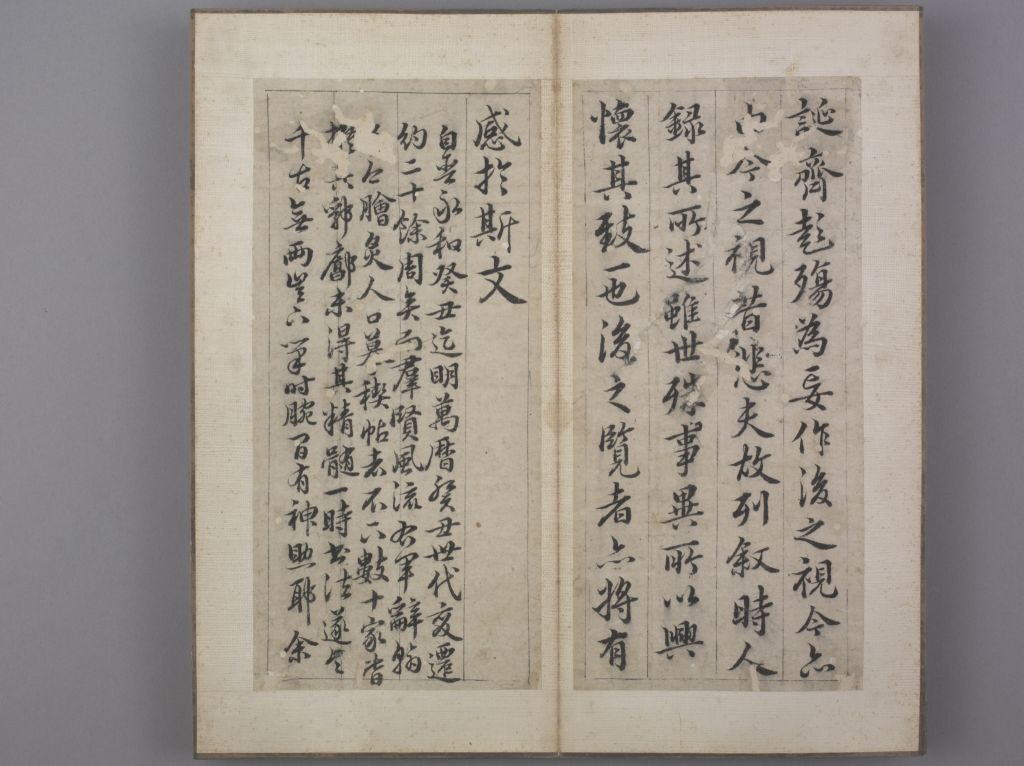 誕齊彭殤為妄作後之視今亦
由今之視昔悲夫故列敘時人
録其所述雖世殊事異所以興
懷其致一也後之覽者亦將有
感於斯文
自晉永和癸丑迄明萬曆癸丑世代變遷
約二十餘周矣而羣賢風流右軍辭翰
膾炙人口摹禊帖者不下數十家皆
郛廓未得其精髓一時書法遂令
千古無兩豈下筆时腕間有神助耶余